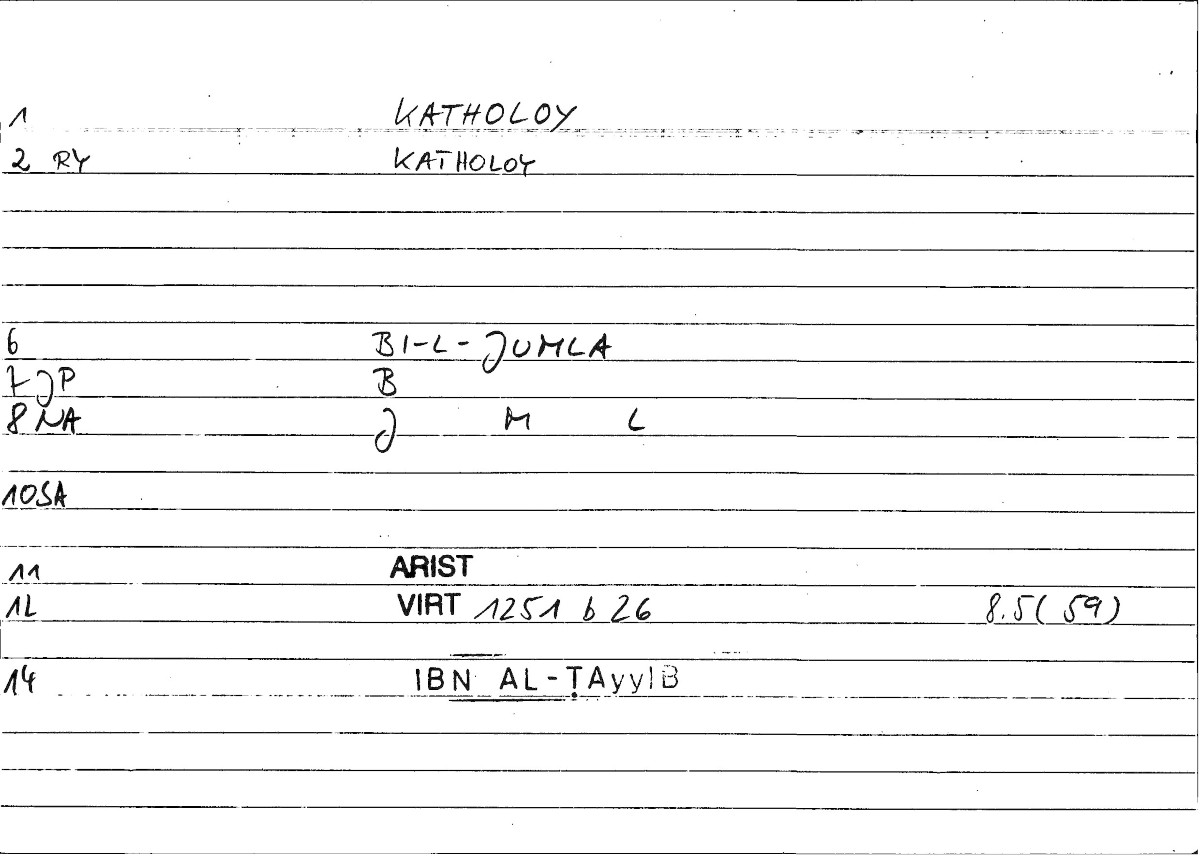 1 KATHOLOY
2 RY KATHOLOY
6 BI-L-JUMLA
7 JP B
8 NA J M L
10SA
11 ARIST
12 VIRT 1251 b 26 8.5(59)
14 IBN AL-ṬAyyIB